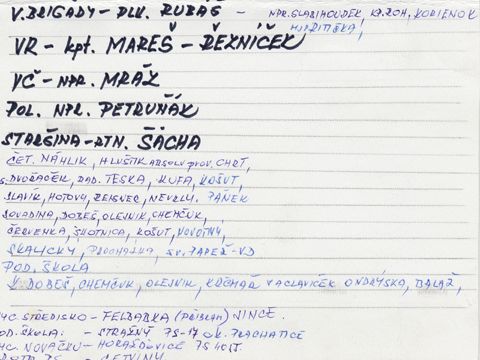 V. BRIGÁDY - PLK. RUBAS - NPR. SLABIHOUDEK, KP. ROH, KOŘIENOK
VR - kpt. MAREŠ - ŘEZNÍČEK
VČ - NPR. MRÁZ
POL. NPR. PETRUŇÁK
STARŠINA - RTN. ŠÁCHA
ČET. NÁHLIK, HLUŠTIK ABSOLV. PROV. CHRT,
S. DVOŘAČEK, RAD. TESKA, KUFA, KOŠUT,
SLAVÍK, HOTOVÝ, REISNER, NEVRLÝ. PÁNEK
SOVADINA, DOBEŠ, OLEJNIK, CHEMČUK,
ČERVENKA, SKOTNICA, KOŠUT, NOVOTNÝ,
SKALICKÝ, PROCHÁZKA, SV. PAPEŽ - VD
POD. ŠKOLA
DOBEŠ, CHEMČUK, OLEJNIK, KRČMAŘ VACLAVIČEK ONDRÝSKA, BALÁŽ,
VÝC. STŘEDISKO - FELBABKA (PŘÍBRAM) JINCE.
POD. ŠKOLA: - STRAŽNÝ 75-17 OK. PRACHATICE
NOVÁČKŮ - HORAŽĎOVICE 75
- CETVINY